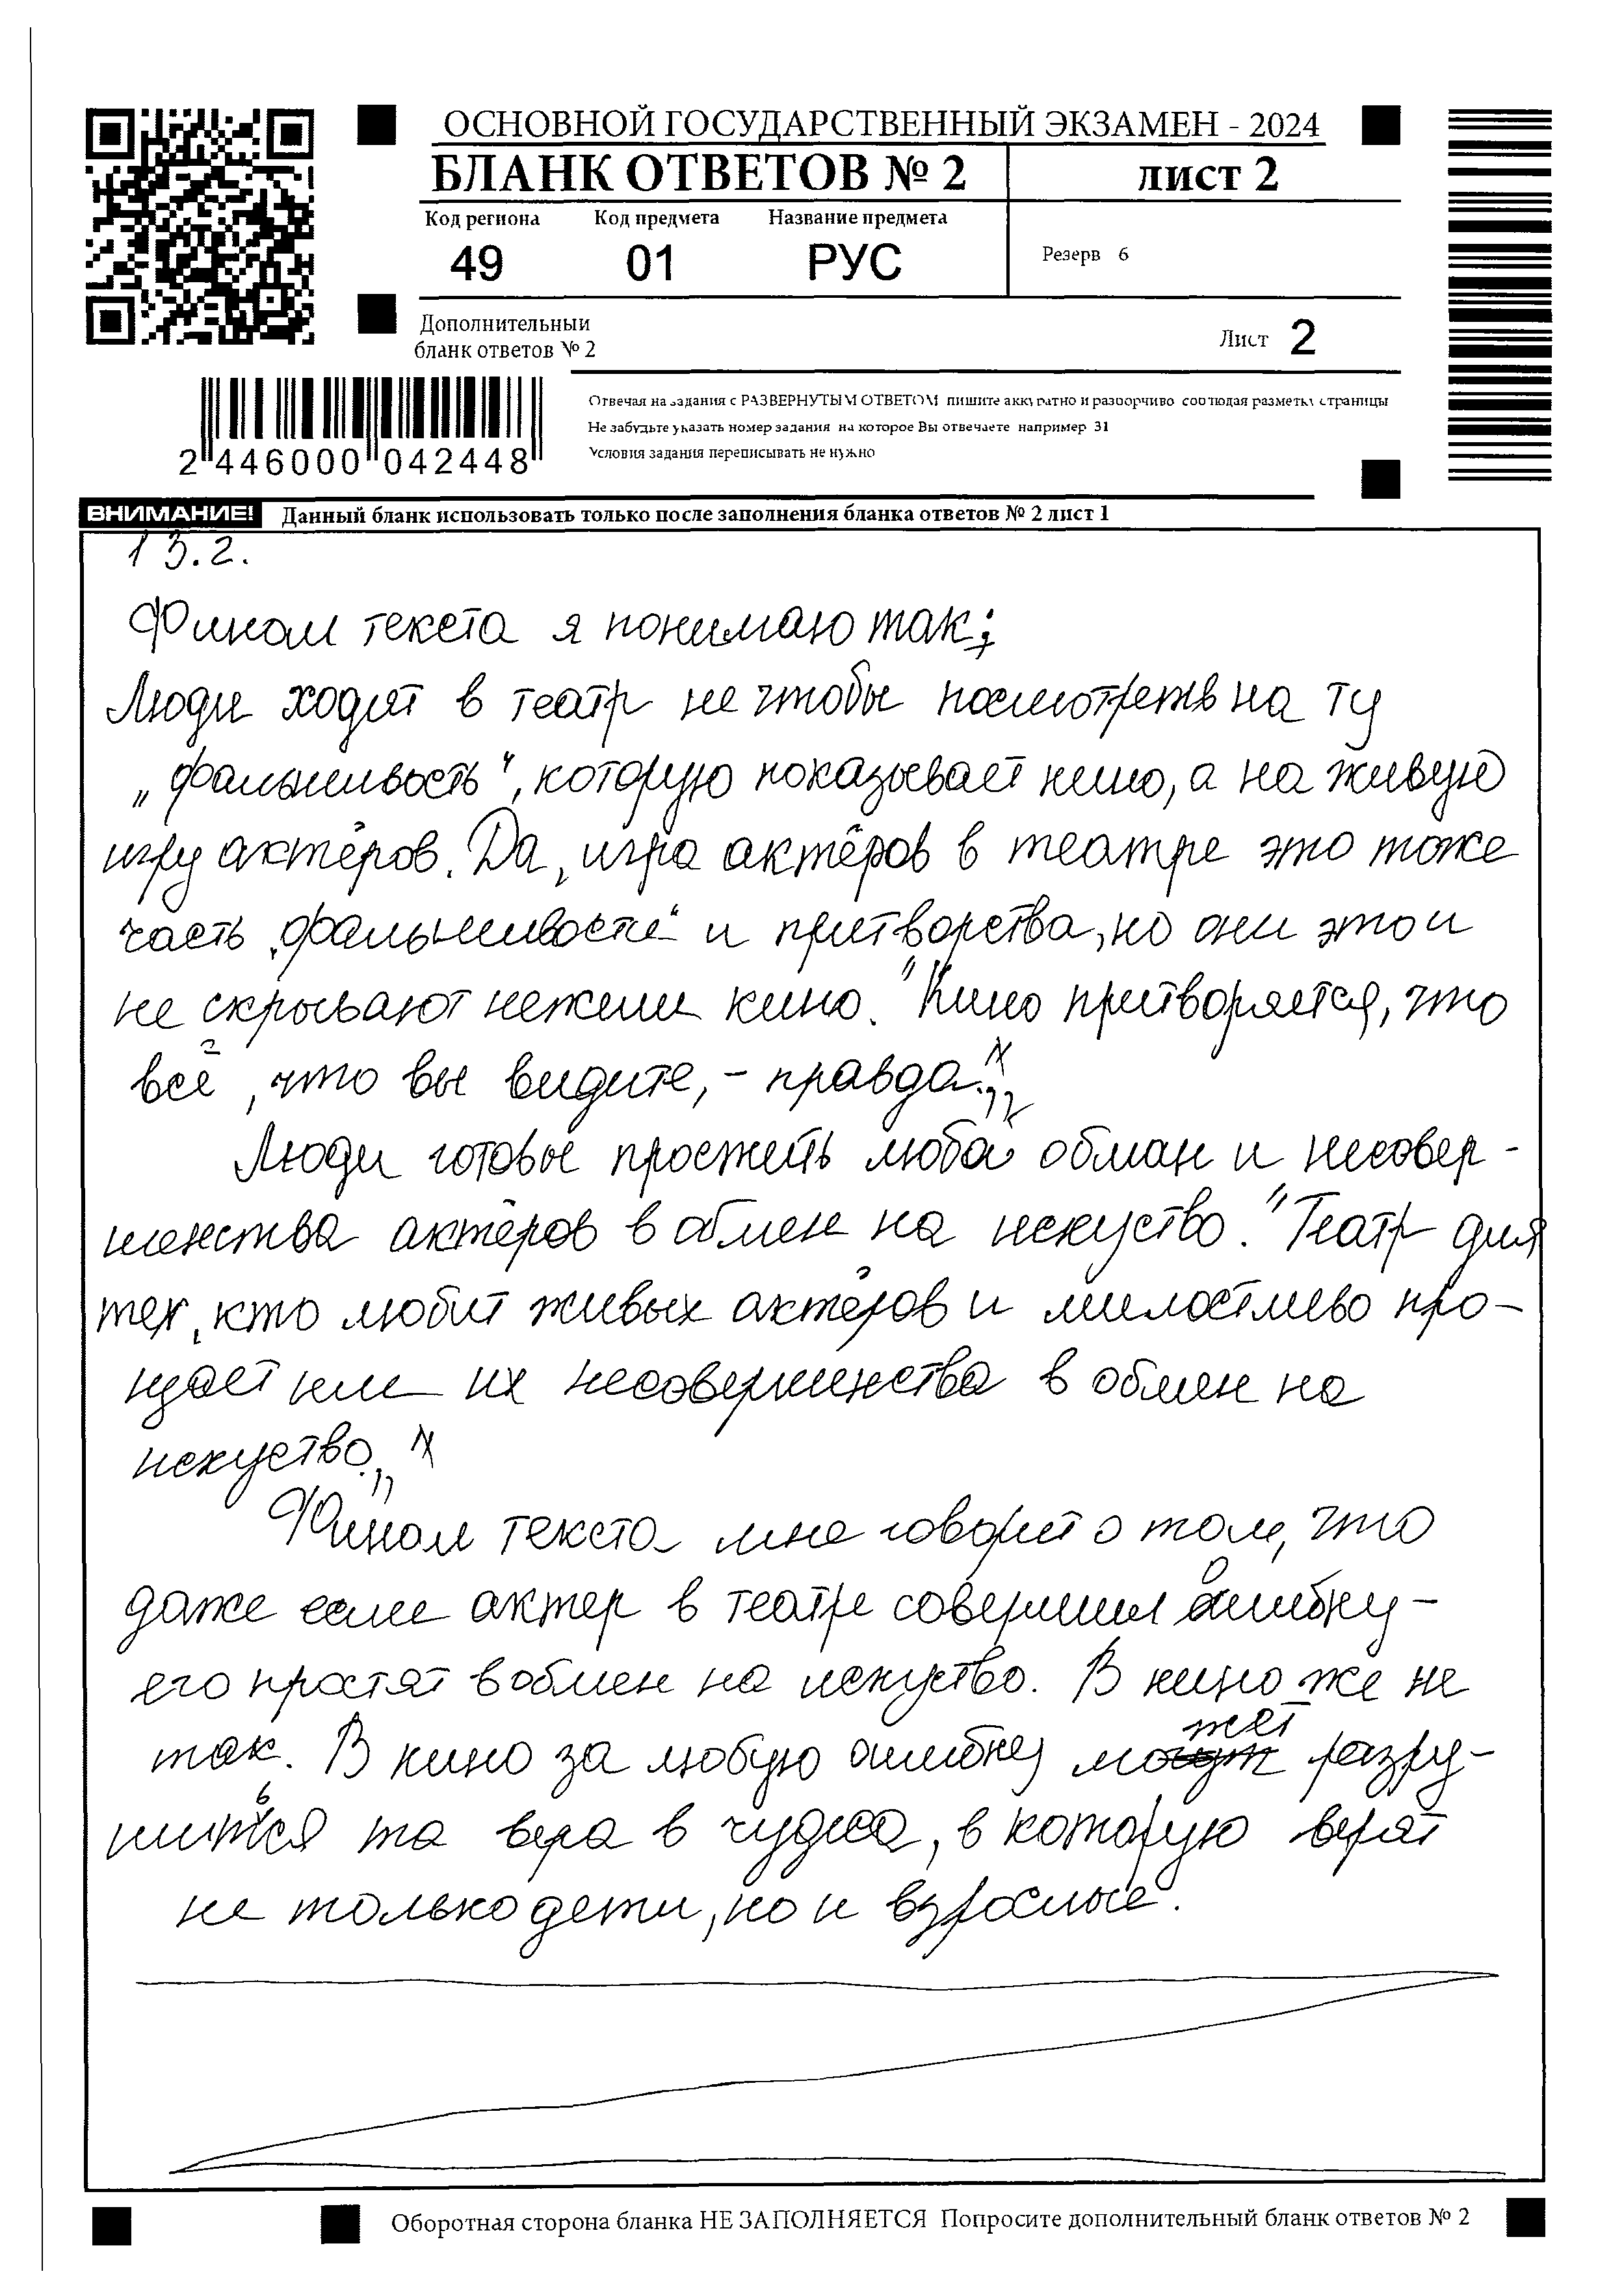 ОСНОВНОЙ ГОСУДАРСТВЕННЫЙ ЭКЗАМЕН - 2024
БЛАНК ОТВЕТОВ № 2 лист 2
Код региона Код предмета Название предмета
49 01 РУС
Резерв 6
Дополнительный
бланк ответов № 2
Лист 2
Отвечая на задания с РАЗВЕРНУТЫМ ОТВЕТОМ пишите аккуратно и разборчиво соблюдая разметку страницы
Не забудьте указать номер задания на которое Вы отвечаете например 31
Условия задания переписывать не нужно
2 446000 042448
ВНИМАНИЕ! Данный бланк использовать только после заполнения бланка ответов № 2 лист 1
13.2.
Финал текста я понимаю так:
Люди ходят в театр не чтобы посмотреть на ту
„фальшивость“, которую показывает кино, а на живую
игру актёров. Да, игра актёров в театре это тоже
часть „фальшивости“ и притворства, но они это и
не скрывают нежели кино. "Кино притворяется, что
всё, что вы видите, - правда."
Люди готовы простить любой обман и несовер-
шенства актёров в обмен на искуство. "Театр для
тех, кто любит живых актёров и милостливо про-
щает им их несовершенства в обмен на
искуство."
Финал текста мне говорит о том, что
даже если актер в театре совершил ошибку -
его простят в обмен на искуство. В кино же не
так. В кино за любую ошибку может разру-
шиться та вера в чудеса, в которую верят
не только дети, но и взрослые.
Оборотная сторона бланка НЕ ЗАПОЛНЯЕТСЯ Попросите дополнительный бланк ответов № 2